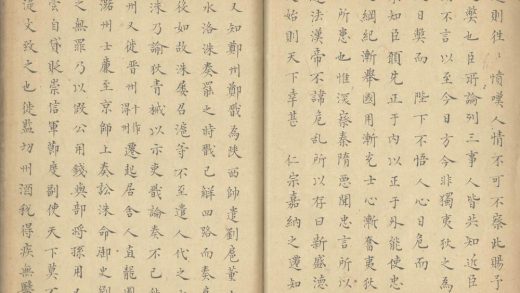 則往〻憤嘆人情不可不察此賜予
獘也臣所論列三事人皆共知近臣
不言以至今日方今非獨夷狄之為
日獘而陛下不悟人心日危而
知臣願先正于内以正于外能使忠
綱紀漸舉國用漸充士心漸奮夷狄
所患也惟深察秦隋惡聞忠言所以
遠法漢帝不諱危亂所以存日新盛德
始則天下幸甚 仁宗嘉納之遷知
又知鄭州鄭戩為陝西帥遣劉滬董
水洛洙奏罷之時戩已解四路而奏
後如故洙屢召滬等不至遣人代之
洙乃諭狄青械以亦吏戩論奏不已
州又徙晉州遷起居舍人直龍
潞州士廉至京師上奏訟洙命御史劉
之無罪乃以假公用錢與部將孫用
自貸貶崇信軍節度副使天下莫
湜文致之也徙監均州酒稅得疾無醫